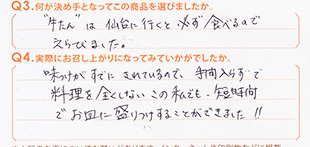 Q3.何が決め手となってこの商品を選びましたか。
"牛たん"は 仙台に行くと必ず食べるので
えらびました。
Q4.実際にお召し上がりになってみていかがでしたか。
味つけがすでに されているので、手間入らずで
料理を全くしない この私でも、短時間
でお皿に盛りつけすることができました!!